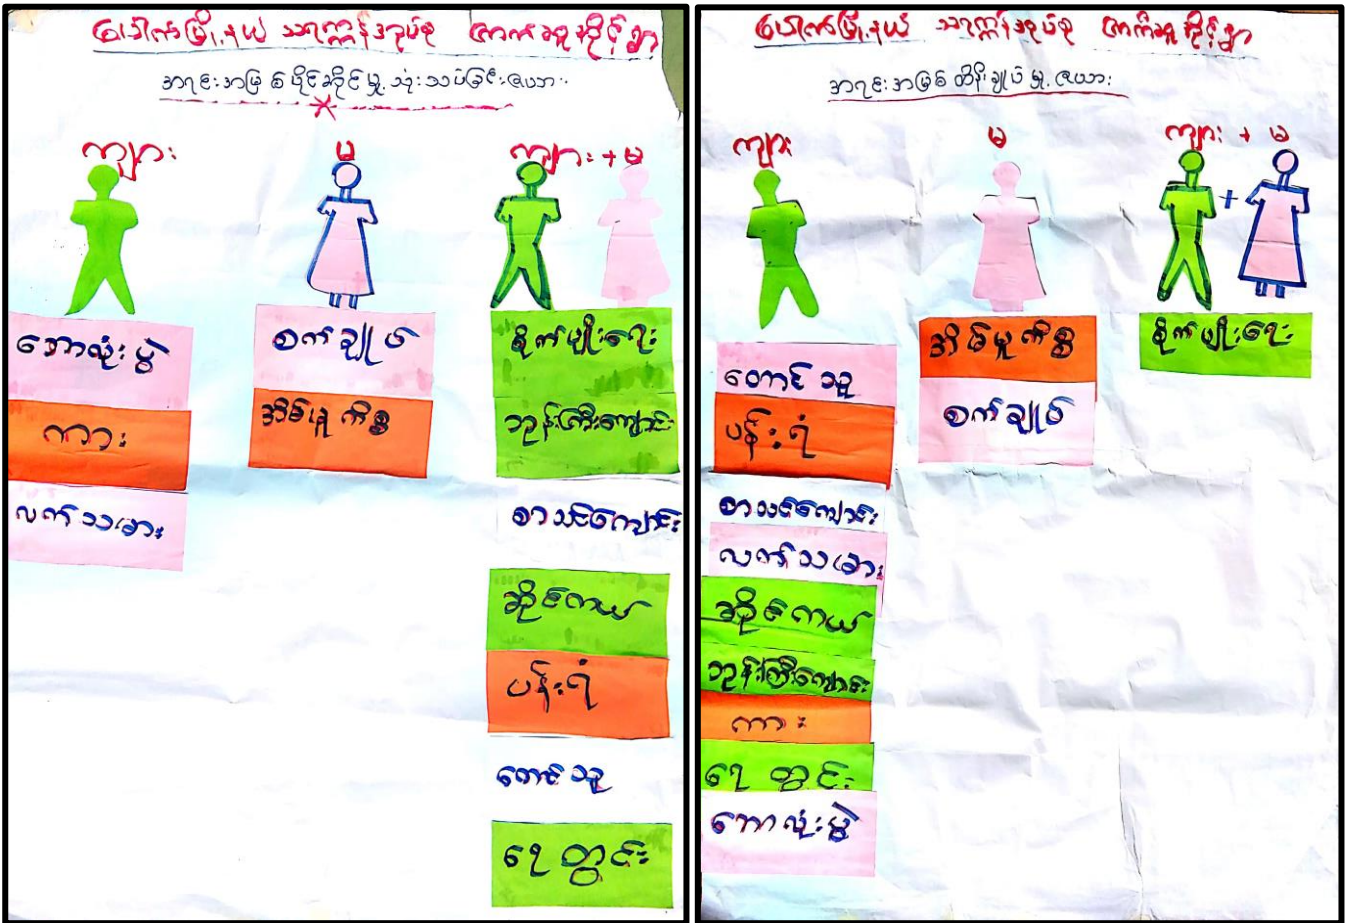 ပေါက်မြို့နယ် သရက္ကန်အုပ်စု ကောက်ဆူဆိုင့်ရွာ
အရင်းအမြစ် ပိုင်ဆိုင်မှု သုံးသပ်ခြင်းဇယား
ကျား
မ
ကျား + မ
ဘောလုံးပွဲ
ကား
လက်သမား
စက်ချုပ်
အိမ်မှုကိစ္စ
စိုက်ပျိုးရေး
ဘုန်းကြီးကျောင်း
စာသင်ကျောင်း
ဆိုင်ကယ်
ပန်းရံ
တောင်သူ
ရေတွင်း
ပေါက်မြို့နယ် သရက္ကန်အုပ်စု ကောက်ဆူဆိုင့်ရွာ
အရင်းအမြစ် ထိန်းချုပ်မှု ဇယား
ကျား
မ
ကျား + မ
+
တောင်သူ
ပန်းရံ
စာသင်ကျောင်း
လက်သမား
ဆိုင်ကယ်
ဘုန်းကြီးကျောင်း
ကား
ရေတွင်း
ဘောလုံးပွဲ
အိမ်မှုကိစ္စ
စက်ချုပ်
စိုက်ပျိုးရေး